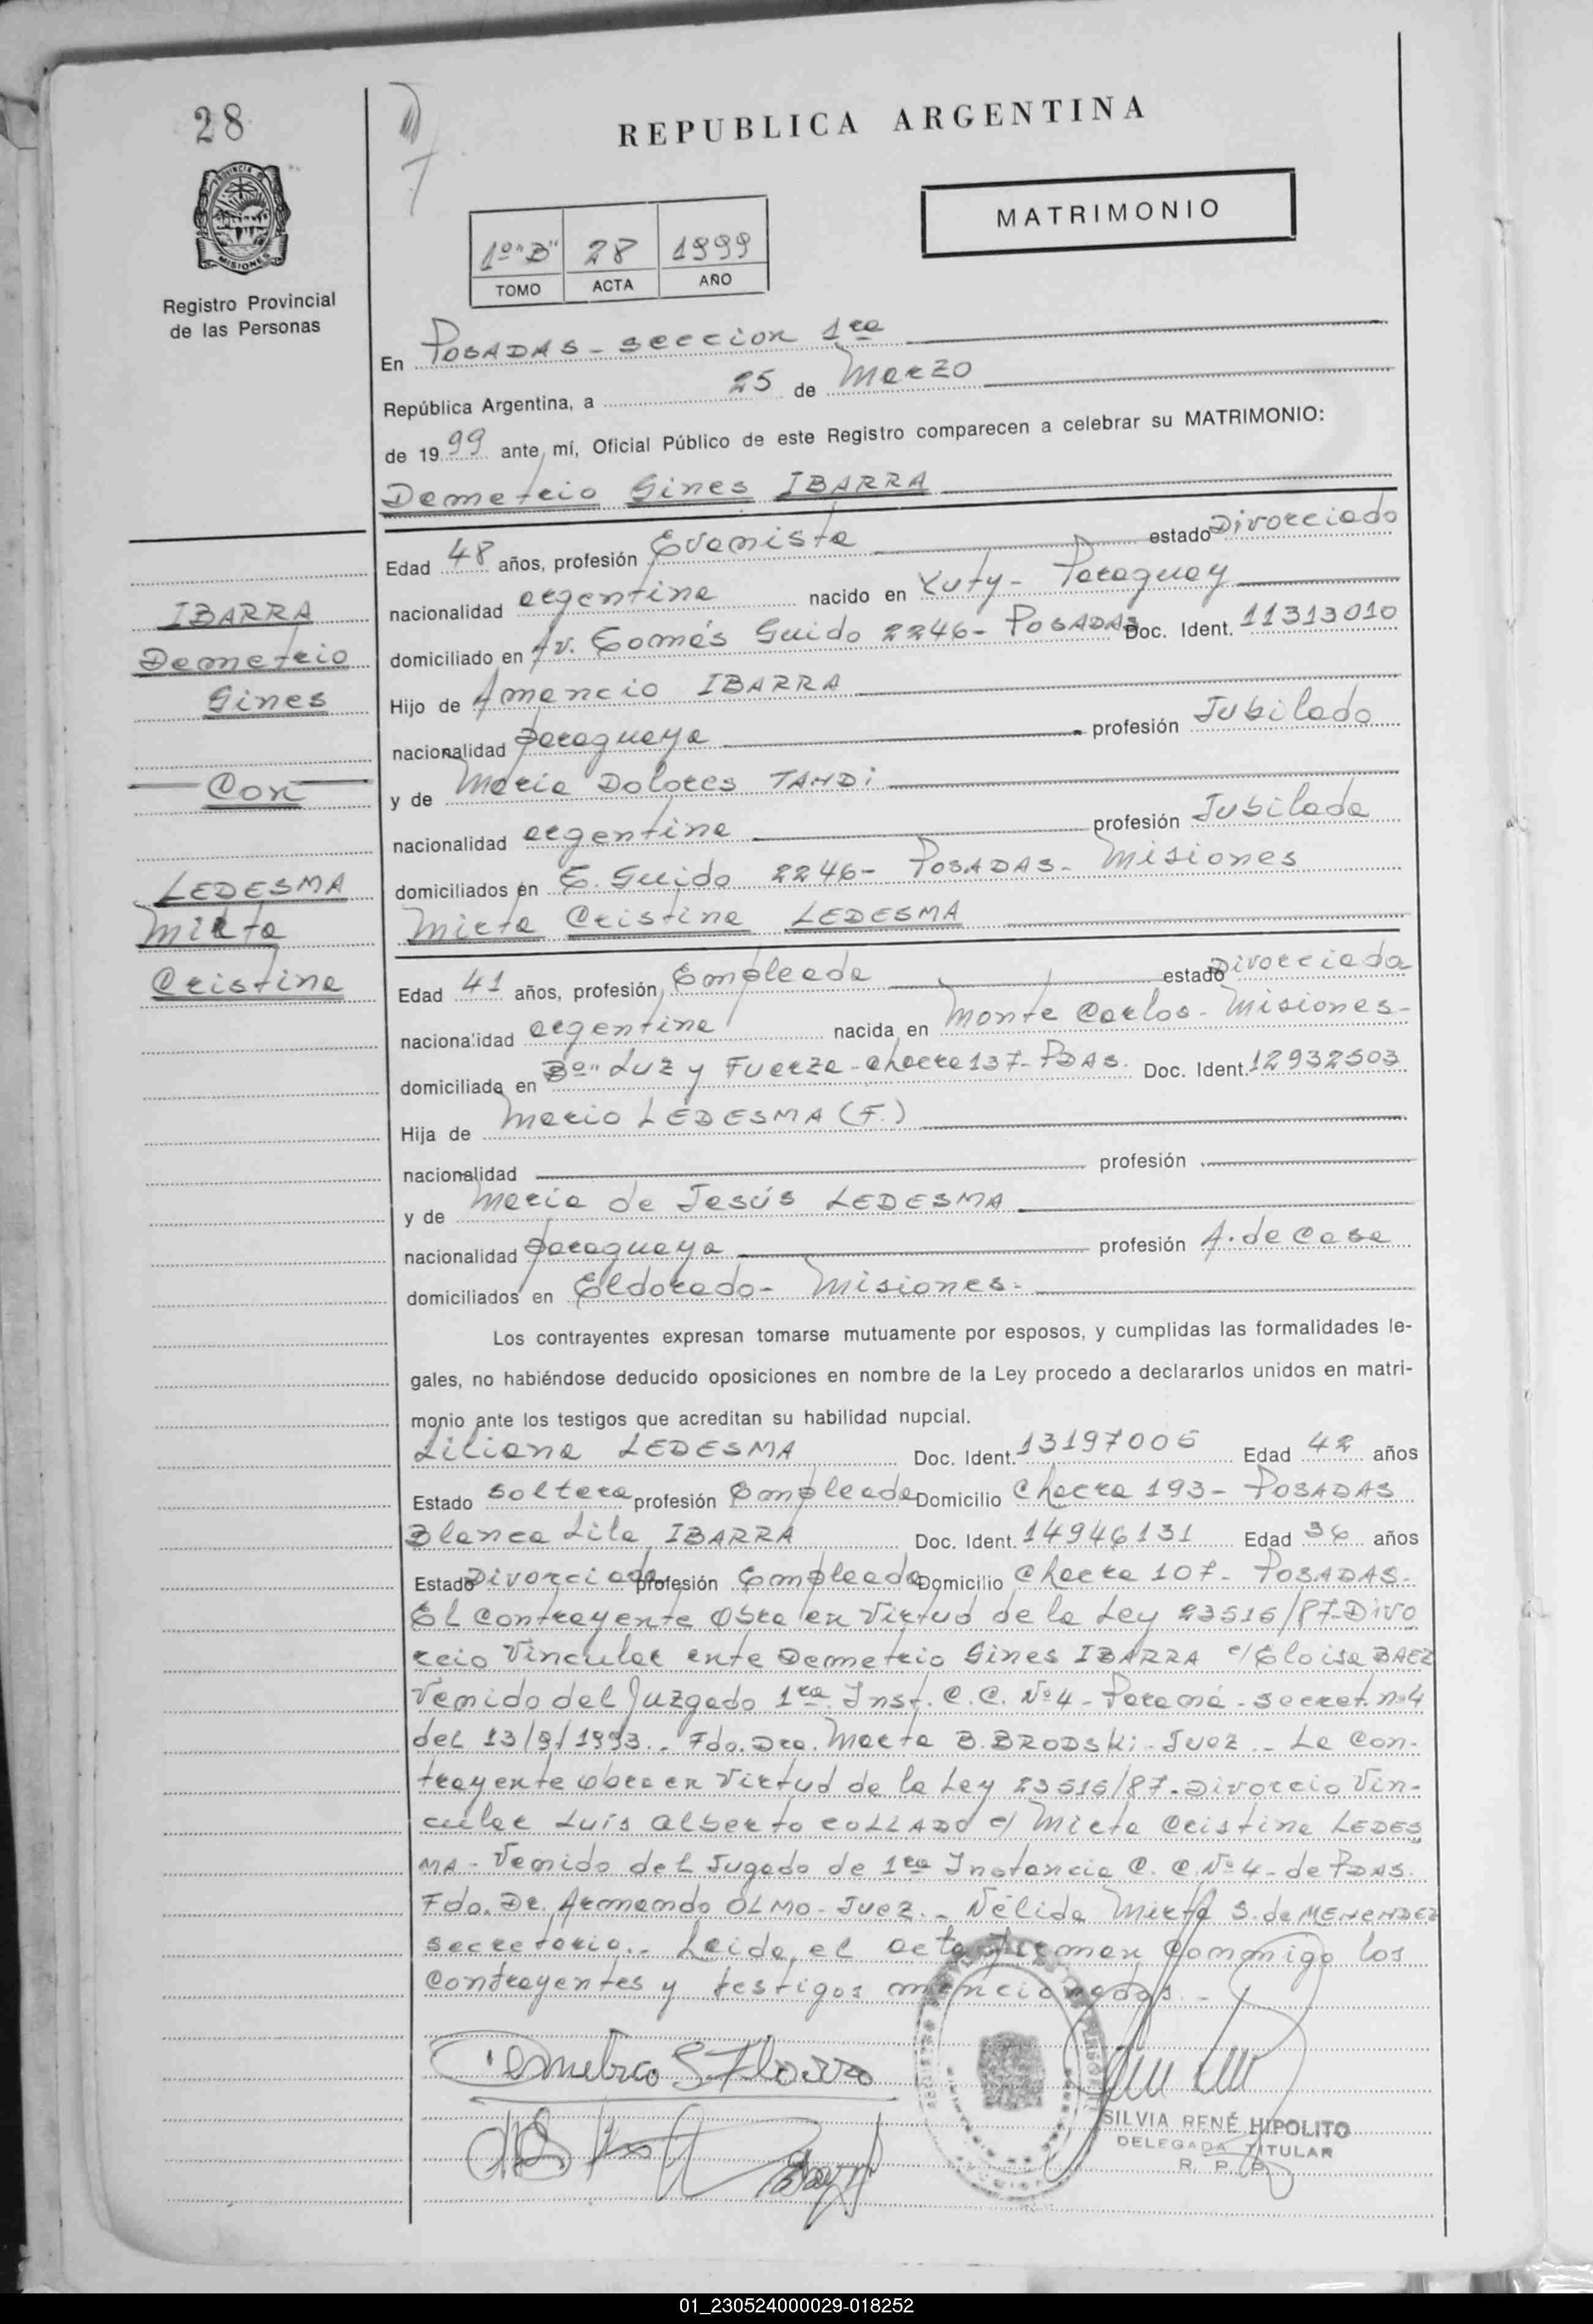 28
PROVINCIA DE
MISIONES
Registro Provincial
de las Personas
REPUBLICA ARGENTINA
MATRIMONIO
1º "B" 28 1999
TOMO ACTA AÑO
En POSADAS - seccion 1ra
República Argentina, a 25 de Marzo
de 1999 ante mí, Oficial Público de este Registro comparecen a celebrar su MATRIMONIO:
Demetrio Gines IBARRA
Edad 48 años, profesión Evanista estado Divorciado
nacionalidad argentina nacido en Yuty - Paraguay
domiciliado en Av. Tomás Guido 2246 - POSADAS Doc. Ident. 11313010
Hijo de Amancio IBARRA
nacionalidad paraguaya profesión Jubilado
y de Maria Dolores TANDi
nacionalidad argentina profesión Jubilada
domiciliados en T. Guido 2246 - POSADAS - Misiones
Mirta Cristina LEDESMA
Edad 41 años, profesión Empleada estado Divorciada
nacionalidad argentina nacida en Monte Carlos - Misiones -
domiciliada en Bº" Luz y Fuerza - chacra 137 - PDAS. Doc. Ident. 12932503
Hija de Mario LEDESMA (F.)
nacionalidad profesión
y de Maria de Jesús LEDESMA
nacionalidad paraguaya profesión A. de Casa
domiciliados en Eldorado - Misiones -
Los contrayentes expresan tomarse mutuamente por esposos, y cumplidas las formalidades le-
gales, no habiéndose deducido oposiciones en nombre de la Ley procedo a declararlos unidos en matri-
monio ante los testigos que acreditan su habilidad nupcial.
Liliana LEDESMA Doc. Ident. 13197006 Edad 42 años
Estado soltera profesión Empleada Domicilio Chacra 193 - POSADAS
Blanca Lila IBARRA Doc. Ident. 14946131 Edad 36 años
Estado Divorciada profesión Empleada Domicilio Chacra 107 - POSADAS -
El Contrayente Obra en Virtud de la Ley 23515/87 - Divo
rcio Vincular ente Demetrio Gines IBARRA c/ Eloisa BAEZ
Venido del Juzgado 1ra. Inst. C. C. Nº 4 - Paraná - secret. nº 4
del 13/9/1993 .- Fdo. Dra. Marta B. BRODSKi - Juez .- La Con-
trayente obra en Virtud de la Ley 23515/87 - Divorcio Vin-
cular Luis Alberto COLLADO c/ Mirta Cristina LEDES
MA - Venido del Jugado de 1ra Instancia C. C. Nº 4 - de PDAS.
Fdo. Dr. Armando OLMO - Juez .- Nélida Mirta S. de MENENDEZ
secretaria .- Leida el acta firman Conmigo los
Contrayentes y testigos mencionados .-
Demetrio G Ibarra
SILVIA RENÉ HIPOLITO
DELEGADA TITULAR
R. P. P.
IBARRA
Demetrio
Gines
Con
LEDESMA
Mirta
Cristina
01_230524000029-018252